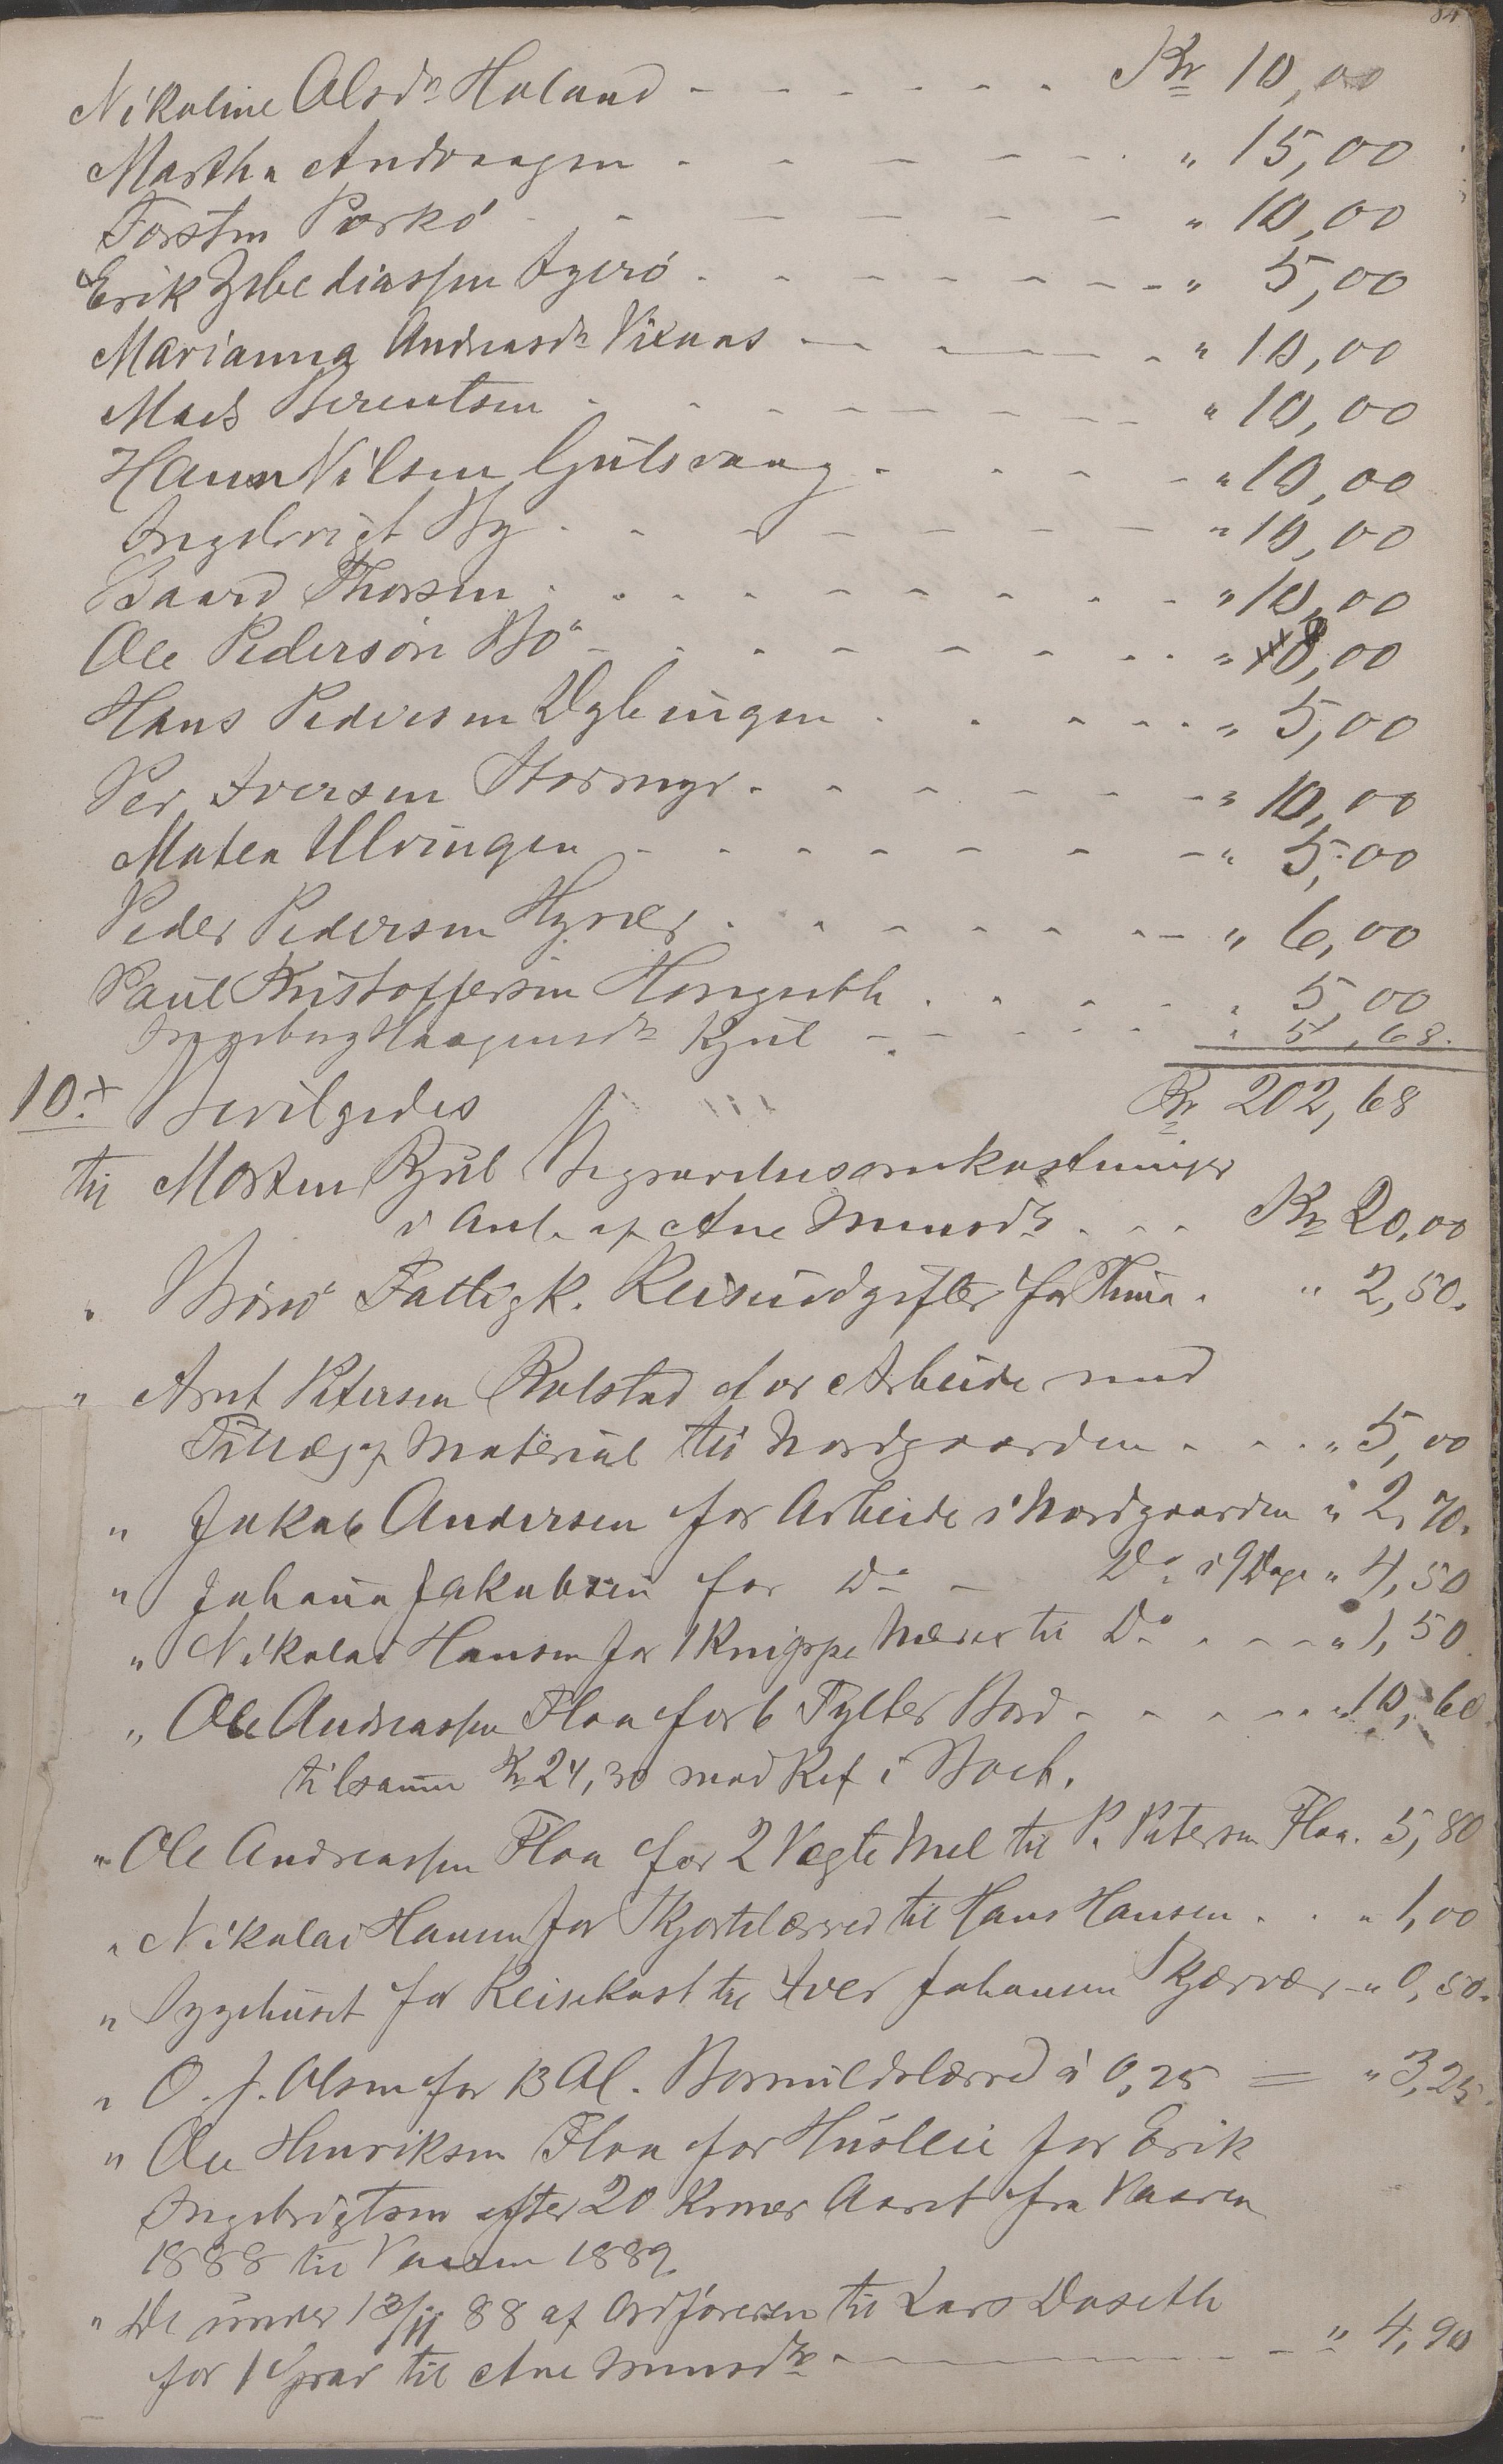 84
Nikoline Olsdr Holand - - - - - - Kr 10,00
Martha Andvaagen - - - - - - " 15,00
Torsten Porkø - - - - - - " 10,00
Erik Zebediassen Igerø - - - - - - " 5,00
Marianna Andreasdr Vixaas - - - - - " 10,00
Mads Berentsen - - - - - - - " 10,00
Hans Nilsen Gulsvaag - - - - " 10,00
Ingebrigt By - - - - - - " 10,00
Baard Thorsen - - - - - - - - " 10,00
Ole Pedersøn Bø - - - - - - - - " 8,00
Hans Pedersen Vgl - - - - - " 5,00
Per Iversen Stormyr - - - - - - " 10,00
Matea Ulvingen - - - - - - - " 5,00
Peder Pedersen Hysvær - - - - - - " 6,00
Paul Kristoffersen Hongseth - - - - " 5,00
Ingeborg Haagensdr Kjul - - - - " 51,68.
10. Bevilgedes Kr 202,68
til Morten Kjul Begravelsesomkostninger
i Anl. af Ane Monsdr - - - Kr 20,00
" Brønø Fattigk. Reiseudgifter for Thina. " 2,50.
" Arnt Petersen Rolstad for Arbeide med
Tillæg af Material til Nordgaarden - - - " 5,00
" Jakob Andersen for Arbeide i Nordgaarden " 2,70.
" Johan Jakobsen for Do - Do i 9 Dage " 4,50
" Nikolai Hansen for 1 Knippe Næver til Do - - - - " 1,50
" Ole Andreassen Floa for 6 Tylter Bord - - - - - " 10,60
tilsamm Kr 24,30 mod Ref i Boeb.
" Ole Andreassen Floa for 2 Vægte Mel til P. Petersen Floa. 5,80
" Nikolai Hansen for Skjortelærred til Hans Hansen - - - " 1,00
" Sygehuset for Reisekost til Iver Johansen Skjærvær - " 0,50.
" O. J. Olsen for 13 Al. Bomuldslærred à 0,25 = " 3,25.
" Ole Henriksen Floa for Husleie for Erik
Ingebrigtsen efter 20 Kroner Aaret fra Vaaren
1888 til Vaaren 1889
" De under 13/11 88 af Ordføreren til Lars Daseth
for 1 Grav til Ane Monsdtr - - - " 4,90